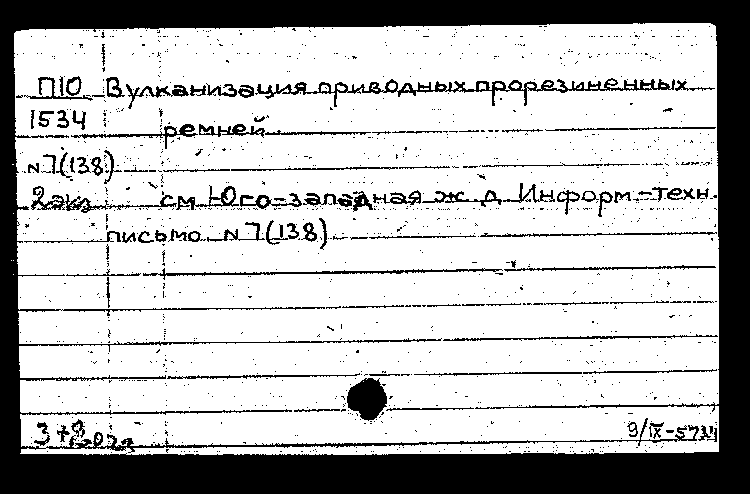 П10 Вулканизация приводных прорезиненных
1534 ремней.
N7(138)
2экз см Юго-западная ж. д. Информ-техн.
письмо N 7(138)
3+
9/IX-57